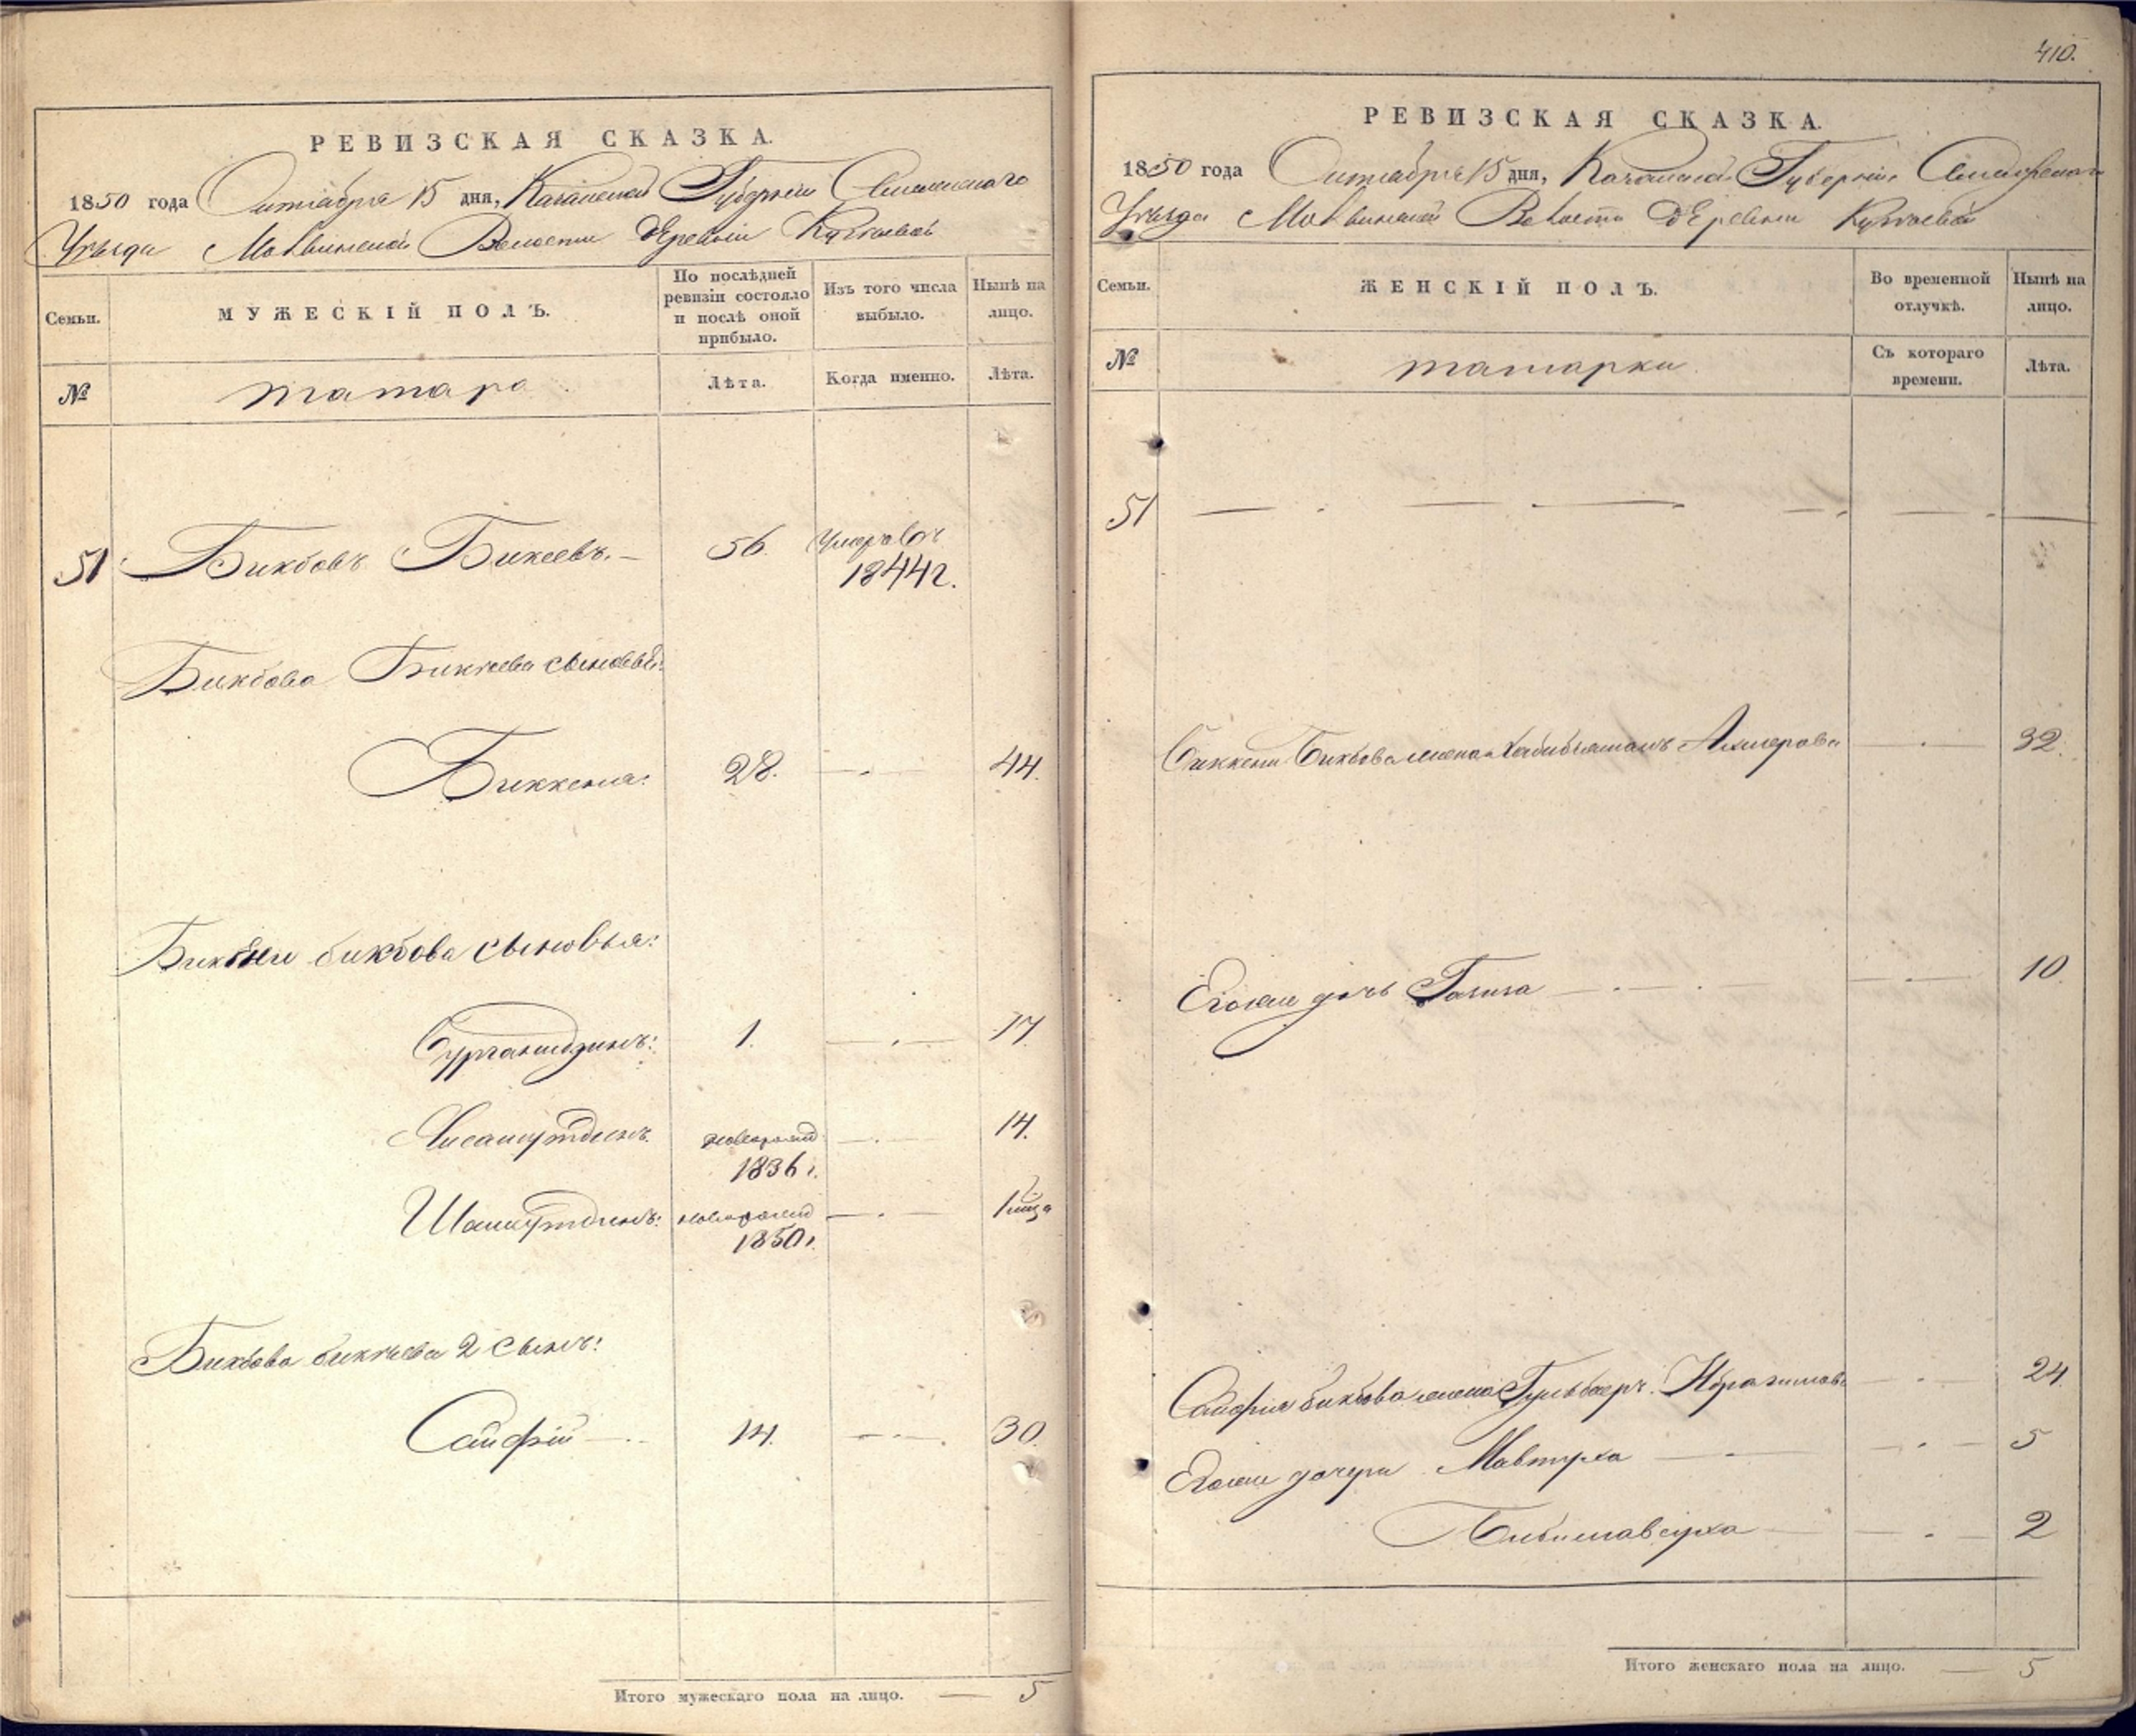 РЕВИЗСКАЯ СКАЗКА.
1850 года Октября 15 дня, Казанской Губернии
Уѣзда Моквинской Волости деревни
Семьи.
МУЖЕСКІЙ ПОЛЪ.
По послѣдней ревизіи состояло и послѣ оной прибыло.
Изъ того числа выбыло.
Нынѣ на лицо.
№
татара
Лѣта.
Когда именно.
Лѣта.
51 Бикбовъ Бикеевъ. 56. умеръ въ
1844 г.
Бикбова Биккеева сыновья:
Биккеня: 28. 44.
бикбова сыновья:
Бурганидзинъ: 1. 17.
Хисамутдинъ новорожд 14.
1836 г.
Шамсутдинъ: новорожд
1850 г.
Бикбова биккеева 2 сынъ:
Сайфій 14. 30.
Итого мужескаго пола на лицо. — 5
410.
РЕВИЗСКАЯ СКАЗКА.
1850 года Октября 15 дня, Казанской Губерніи
Уѣзда Моквинской Волости деревни
Семьи.
ЖЕНСКІЙ ПОЛЪ.
Во временной отлучкѣ.
Нынѣ на лицо.
№
татарки
Съ котораго времени.
Лѣта.
51
Биккени Бикбова жена Хабибзямалъ 32.
Егоже дочь 10.
Сайфия бикбова жена Ибрагимова 24.
Егоже дочери 5
2
Итого женскаго пола на лицо. — 5